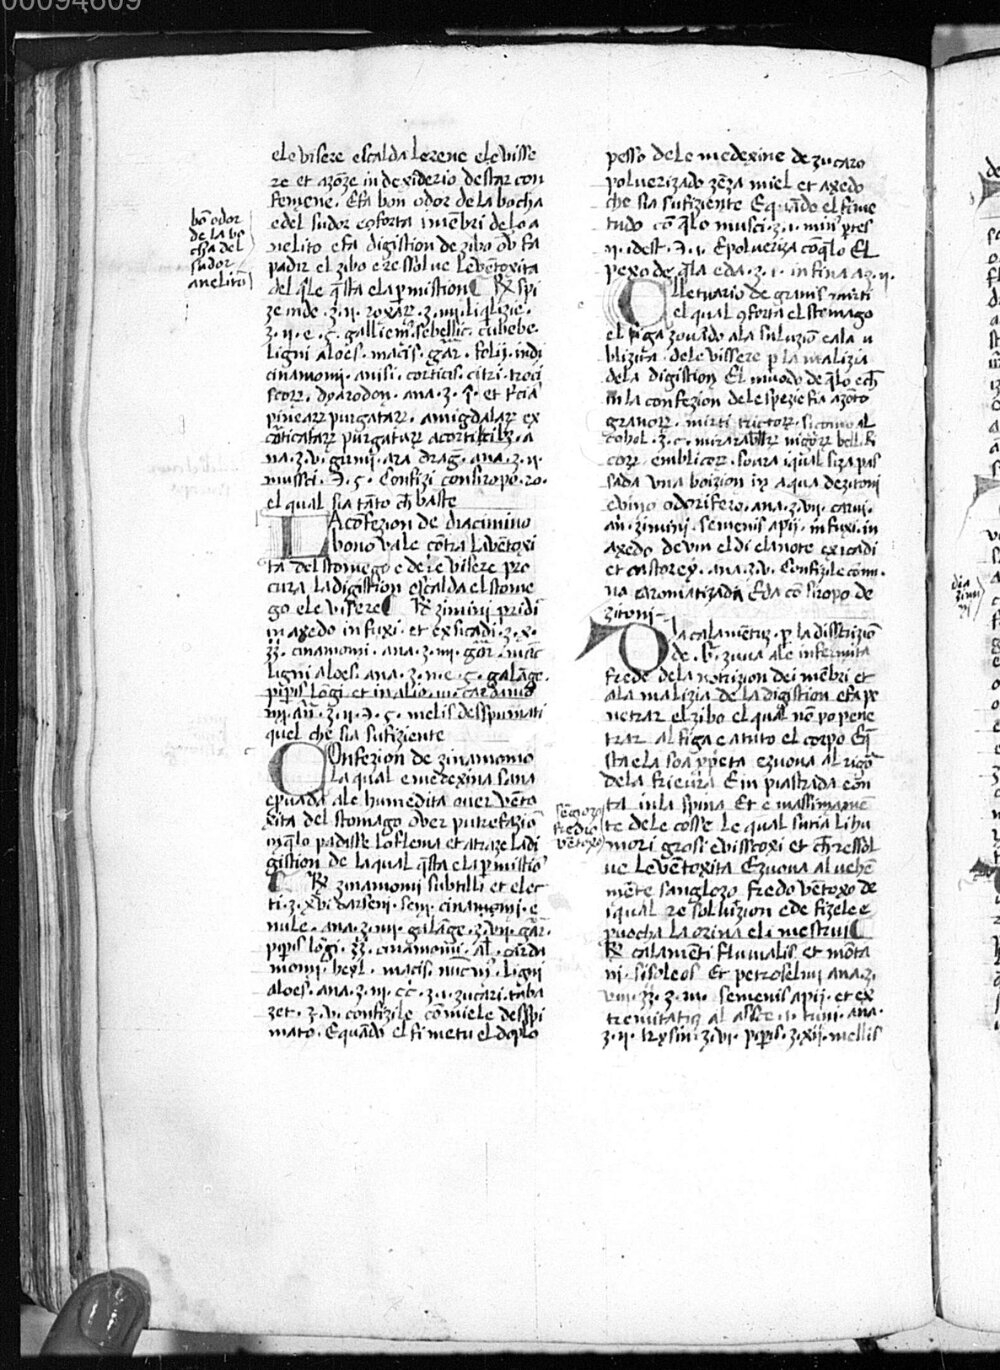 00094609
ele visere escalda le rene ele visse
re et azonze in dexiderio de star con
femene. Efa bon odor de la bocha
edel sudor coforta i menbri de lo a
nelito efa digistion de zibo ov fa
padir el zibo e ressolve le ventoxita
del qle qsta ela pmistion ℞ spi
ze nide . ʒ. ii. roxarꝝ . ʒ. iiii. liqlizie.
ʒ. ii. e. ς. galliem. sebellic. cubebe.
ligni aloes. macis. gar. folij. indi
cinamomi. anisi. corticis. citri. troci
scorꝝ. dyarodon. ana. ʒ. et
pinearꝝ purgatarꝝ. amigdalarꝝ ex
corticatarꝝ purgatarꝝ a
na. ʒ. v. gumi. ara drag. ana. ʒ. ii.
mussci. ς. Confizi con siropo. ro.
el qual sia tato ch baste
La cofezion de diacimino
bono vale contra la ventoxi
ta del stomego e de le visere pro
cura la digistion escalda el stome
go ele visere ℞ zimini pridi
in axedo infuxi. et exsicadi. ʒ. x.
ʒʒ. cinamomi. ana. ʒ. iiii. gar. nuc
ligni aloes. ana. ʒ. ii. e. ς. galange.
pipis logi. et in alio. iii. cardamo
mi. an. ʒ. ii. ς. melis desspumati
quel che sia sufiziente
Confezion de zinamomo
la qual e medexina sana
epuada ale humedita over vento
xita del stomago over putrefazio
in qlo padisse lo flema et atraze la di
gistion de la qual qsta e la pmistio
℞ zinamomi subtilli et elec
ti. ʒ. xvi darseni. sen. cinamomi. e
nule. ana. ʒ. iiii. galage. ʒ. vii. gar.
pipis logi. ʒʒ. cinamomi. al. carda
momi. heyl. macis. nucis. ligni
aloes. ana. ʒ. iii. cc. ʒ. i. zucari. taba
zet. ʒ. v. confizile. con miele desspi
mato. Equado el fimetu el doplo
bo odor
de la bo
cha del
sudor
anelito
pesso dele medexine de zucaro
polverizado zenza miel et axedo
che sia sufiziente Equado el fime
tudo con qlo musci. ʒ. i. min ptes
ii. idest. i. Epolveriza co qlo El
pexo de qla eda. ʒ. i. in fina a ʒ. ii.
Elletuario de granis mirti
el qual coforta el stemago
el figa zovando ala suluzion eala u
blizita. dele vissere p la malizia
dela digistion El muodo de qlo ech
in la confezion dele spezie fia azonto
granorꝝ. mirti trictorꝝ. si como al
cohol. ʒ. c. mirabolorꝝ nigorꝝ bell.
corꝝ emblicorꝝ. soura i qual sia pas
sada una boizion in aqua de zitoni
evino odorifero. ana. ʒ. vii. carui.
an. zimini. semenis apij. infuxi. in
axedo de vin el di ela note exicadi
et castorey. ana. ʒ. v. Confizile comi.
va earomatizadi Eda con siropo de
zitoni
Dia calamentis. p la disstrizio
de zuva ale infermita
frede dela notrizion dei membri et
ala malizia de la digistion efa pe
netrar el zibo el qual non po pene
trar al figa e atuto el corpo Eq
sta ela soa ppeta e zuova al rigo
dela frieura Ein piastrada con
ta in la spina Et e massimame
te dele cosse le qual sutia li hu
mori grosi evisscoxi et ch ressol
ve le ventoxita Ezuova al vehe
mente sanglozo fredo ventoxo de
i qual re solvizion ede fizele e
puocha la orina eli mestrui
℞ calamenti fluvialis et monta
ni. sisoleos Et petroselini ana. ʒ.
viii. ʒʒ. ʒ. iii. semenis apij. et ex
tremitatis al timi. ana.
ʒ. ii. ʒ. vi. pipis. ʒ. xii. mellis
sengozo
fredo
ventoxo
dia
zimi
ni